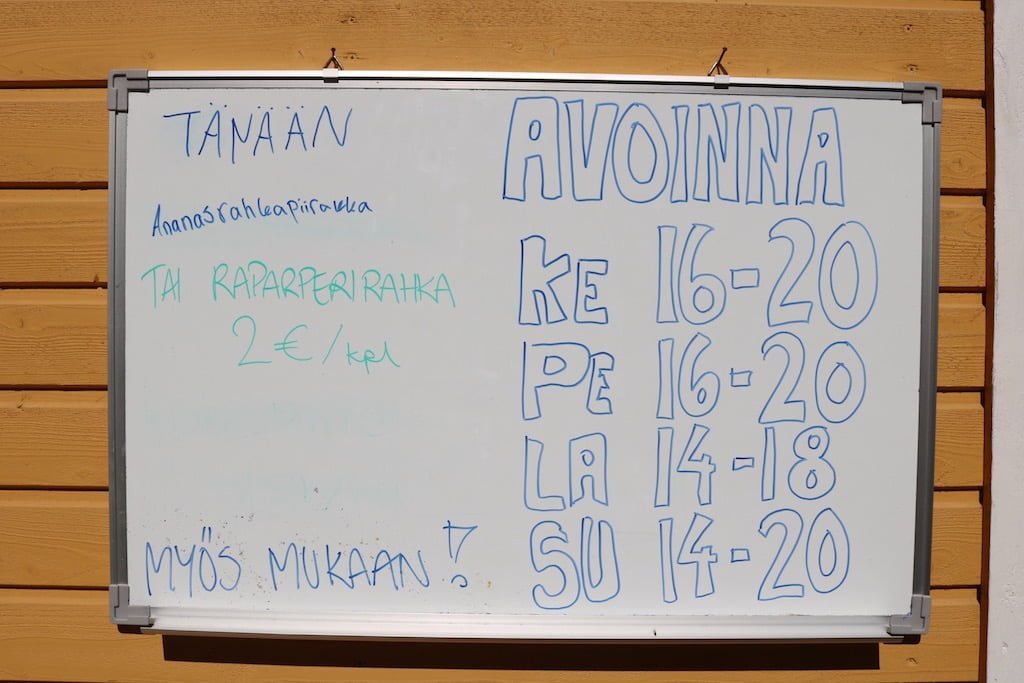 TÄNÄÄN
Ananasrahkapiirakka
TAI RAPARPERIRAHKA
2 €/kpl
MYÖS MUKAAN !
AVOINNA
KE 16-20
PE 16-20
LA 14-18
SU 14-20